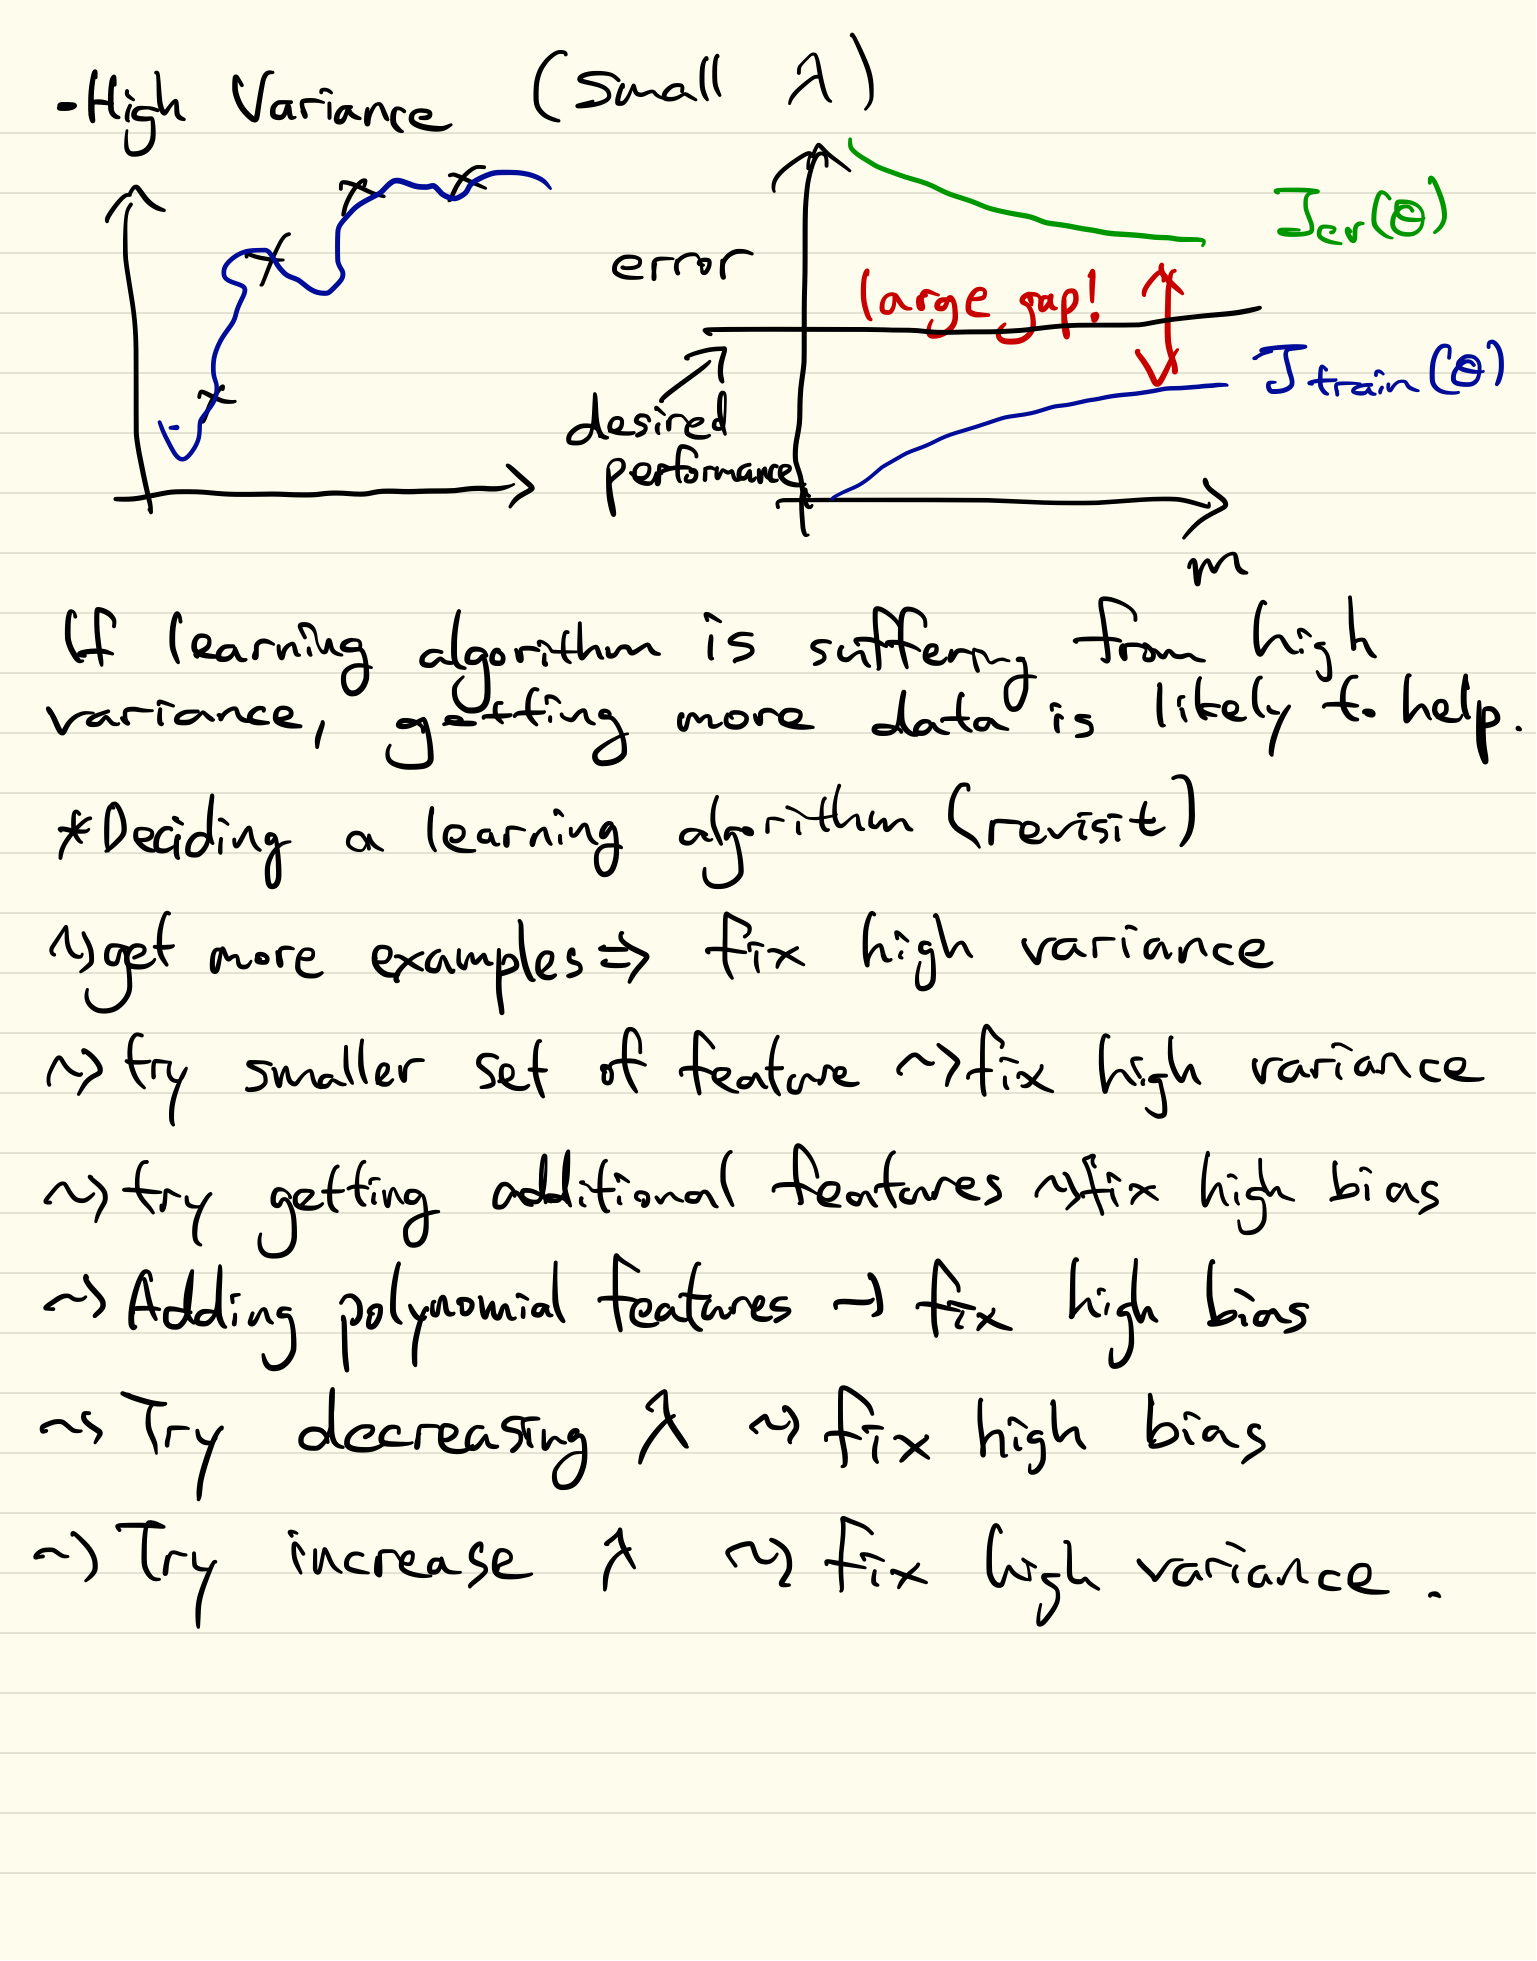 -High Variance (Small λ)
error
large gap!
J_cv(θ)
J_train(θ)
desired
performance
m
If learning algorithm is suffering from high
variance, getting more data is likely to help.
*Deciding a learning algorithm (revisit)
~> get more examples => fix high variance
~> try smaller set of feature ~> fix high variance
~> try getting additional features ~> fix high bias
~> Adding polynomial features ~> fix high bias
~> Try decreasing λ ~> fix high bias
~> Try increase λ ~> fix high variance.